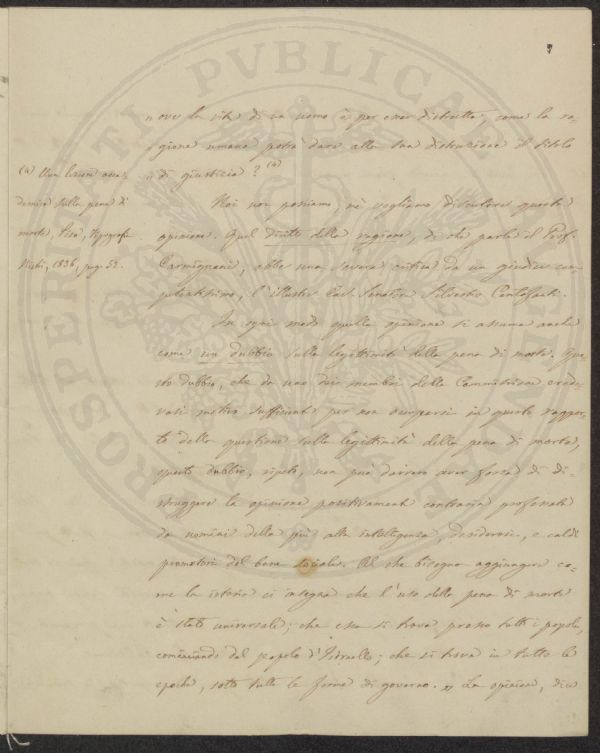 „ ove la vita di un uomo è per esser distrutta, come la ra-
„ gione umana potrà dare alla sua distruzione il titolo
„ di giustizia? (a)
(a) Una lezione acca-
demica sulla pena di
morte, Pisa, Tipografia
Nistri, 1836, pag. 52.
Noi non possiamo, nè vogliamo discutere questa
opinione. Quel diritto della ragione, di che parla il Prof.
Carmignani, ebbe una severa critica da un giudice com-
petentissimo, l'illustre Cav. Senatore Silvestro Centofanti.
In ogni modo quella opinione si assuma anche
come un dubbio sulla legittimità della pena di morte. Que-
sto dubbio, che da uno dei membri della Commissione crede-
vasi motivo sufficiente per non occuparsi in questo rappor-
to della questione sulla legittimità della pena di morte,
questo dubbio, ripeto, non può davvero aver forza di di-
struggere la opinione positivamente contraria professata
da uomini della più alta intelligenza, desiderosi, e caldi
promotori del bene sociale. Al che bisogna aggiungere co-
me la istoria ci insegna che l'uso della pena di morte
è stato universale; che essa si trova presso tutti i popoli,
cominciando dal popolo d'Isdraello; che si trova in tutte le
epoche, sotto tutte le forme di governo. „ La opinione, dice
PROSPERITATI PVBLICAE AVGENDAE